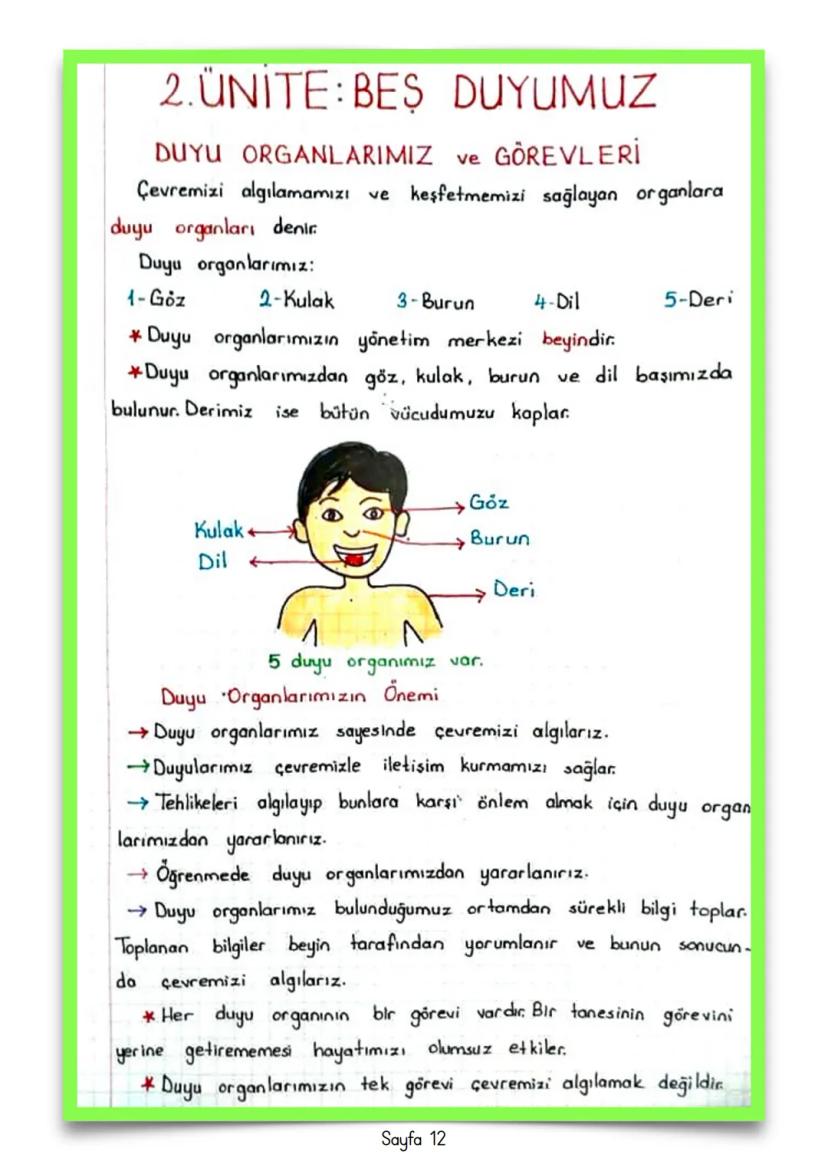 2.ÜNİTE:BEŞ DUYUMUZ
DUYU ORGANLARIMIZ ve GÖREVLERİ
Çevremizi algılamamızı ve keşfetmemizi sağlayan organlara
duyu organları denir.
Duyu organlarımız:
1-Göz 2-Kulak 3-Burun 4-Dil 5-Deri
* Duyu organlarımızın yönetim merkezi beyindir.
*Duyu organlarımızdan göz, kulak, burun ve dil başımızda
bulunur. Derimiz ise bütün vücudumuzu kaplar.
Göz
Kulak
Burun
Dil
Deri
5 duyu organımız var.
Duyu Organlarımızın Önemi
→ Duyu organlarımız sayesinde çevremizi algılarız.
→ Duyularımız çevremizle iletişim kurmamızı sağlar.
→ Tehlikeleri algılayıp bunlara karşı önlem almak için duyu organ
larımızdan yararlanırız.
→ Öğrenmede duyu organlarımızdan yararlanırız.
→ Duyu organlarımız bulunduğumuz ortamdan sürekli bilgi toplar.
Toplanan bilgiler beyin tarafından yorumlanır ve bunun sonucun-
da çevremizi algılarız.
* Her duyu organının bir görevi vardır. Bir tanesinin görevini
yerine getirememesi hayatımızı olumsuz etkiler.
* Duyu organlarımızın tek görevi çevremizi algılamak değildir.
Sayfa 12